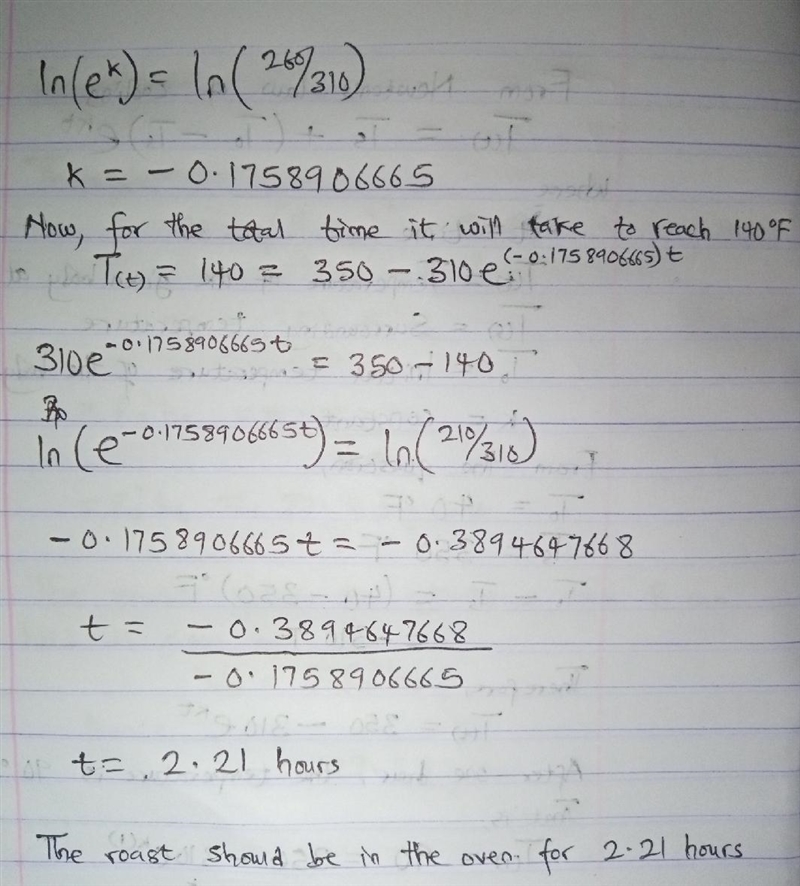 ln(e^k) = ln(260/310)
k = -0.1758906665
Now, for the total time it will take to reach 140°F
T(t) = 140 = 350 - 310e^(-0.1758906665)t
310e^-0.1758906665t = 350 - 140
ln(e^-0.1758906665t) = ln(210/310)
-0.1758906665t = -0.3894647668
t = -0.3894647668
-0.1758906665
t = 2.21 hours
The roast should be in the oven for 2.21 hours